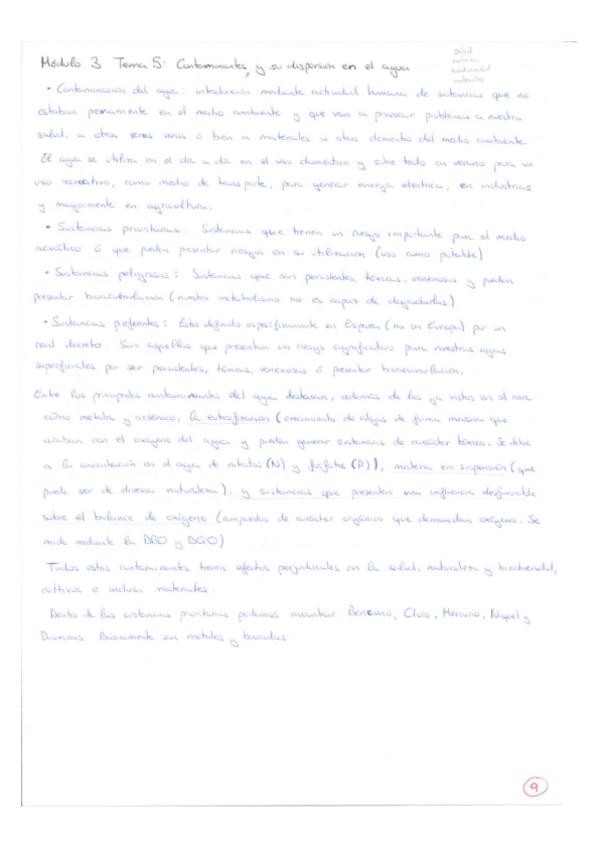 Módulo 3 Tema 5: Contaminantes y su dispersión en el agua
salud
naturaleza
biodiversidad
materiales
• Contaminación del agua: introducción mediante actividad humana de sustancias que no
estaban previamente en el medio ambiente y que van a provocar problemas a nuestra
salud, a otros seres vivos ó bien a materiales u otros elementos del medio ambiente.
El agua se utiliza en el día a día en el uso doméstico y sobre todo en verano para un
uso recreativo, como medio de transporte, para generar energía eléctrica, en industrias
y mayormente en agricultura.
• Sustancias prioritarias: Sustancias que tienen un riesgo importante para el medio
acuático ó que pueden presentar riesgos en su utilización (uso como potable)
• Sustancias peligrosas: Sustancias que son persistentes, tóxicas, venenosas y pueden
presentar bioacumulación (nuestro metabolismo no es capaz de degradarlas)
• Sustancias preferentes: Esta definido específicamente en España (no en Europa) por un
real decreto. Son aquellas que presentan un riesgo significativo para nuestras aguas
superficiales por ser persistentes, tóxicas, venenosas ó presentar bioacumulación.
Entre los principales contaminantes del agua destacan, además de los ya vistos en el
como metales y arsénico, la eutrofización (crecimiento de algas de forma masiva que
acaban con el oxígeno del agua y pueden generar sustancias de carácter tóxico. Se debe
a la concentración en el agua de nitratos (N) y fosfatos (P)), materia en suspensión (que
puede ser de diversa naturaleza), y sustancias que presentan una influencia desfavorable
sobre el balance de oxígeno (compuestos de carácter orgánico que demandan oxígeno. Se
mide mediante la DBO y DQO)
Todos estos contaminantes tienen efectos perjudiciales en la salud, naturaleza y biodiversidad,
cultivos e incluso materiales.
Dentro de las sustancias prioritarias podemos encontrar Benceno, Cloro, Mercurio, Níquel y
Básicamente son metales y biocidas.
9